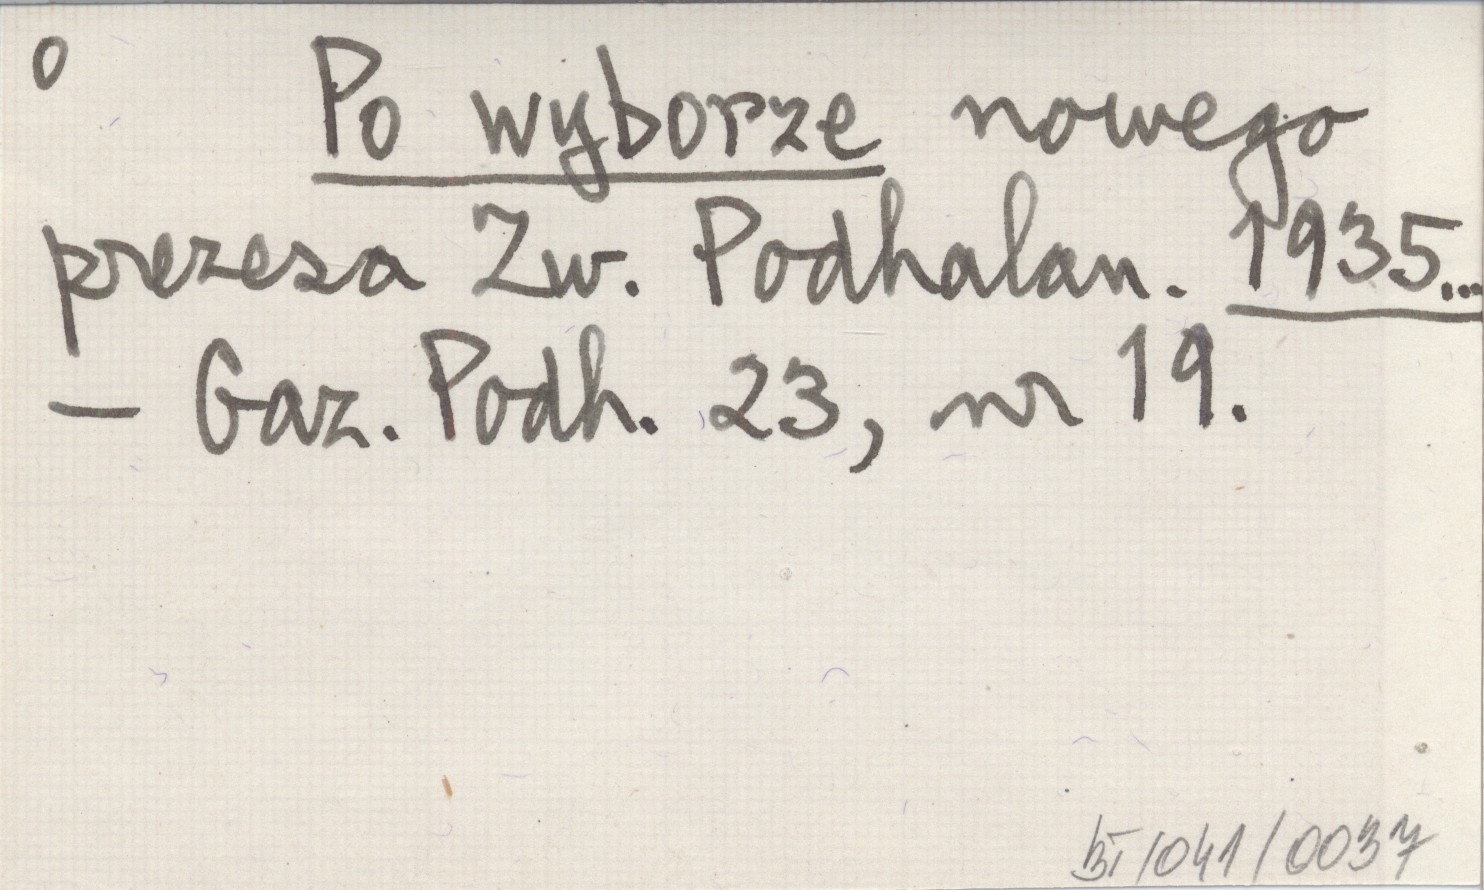 o Po wyborze nowego
prezesa Zw. Podhalan. 1935...
— Gaz. Podh. 23, nr 19.
BI/041/0037